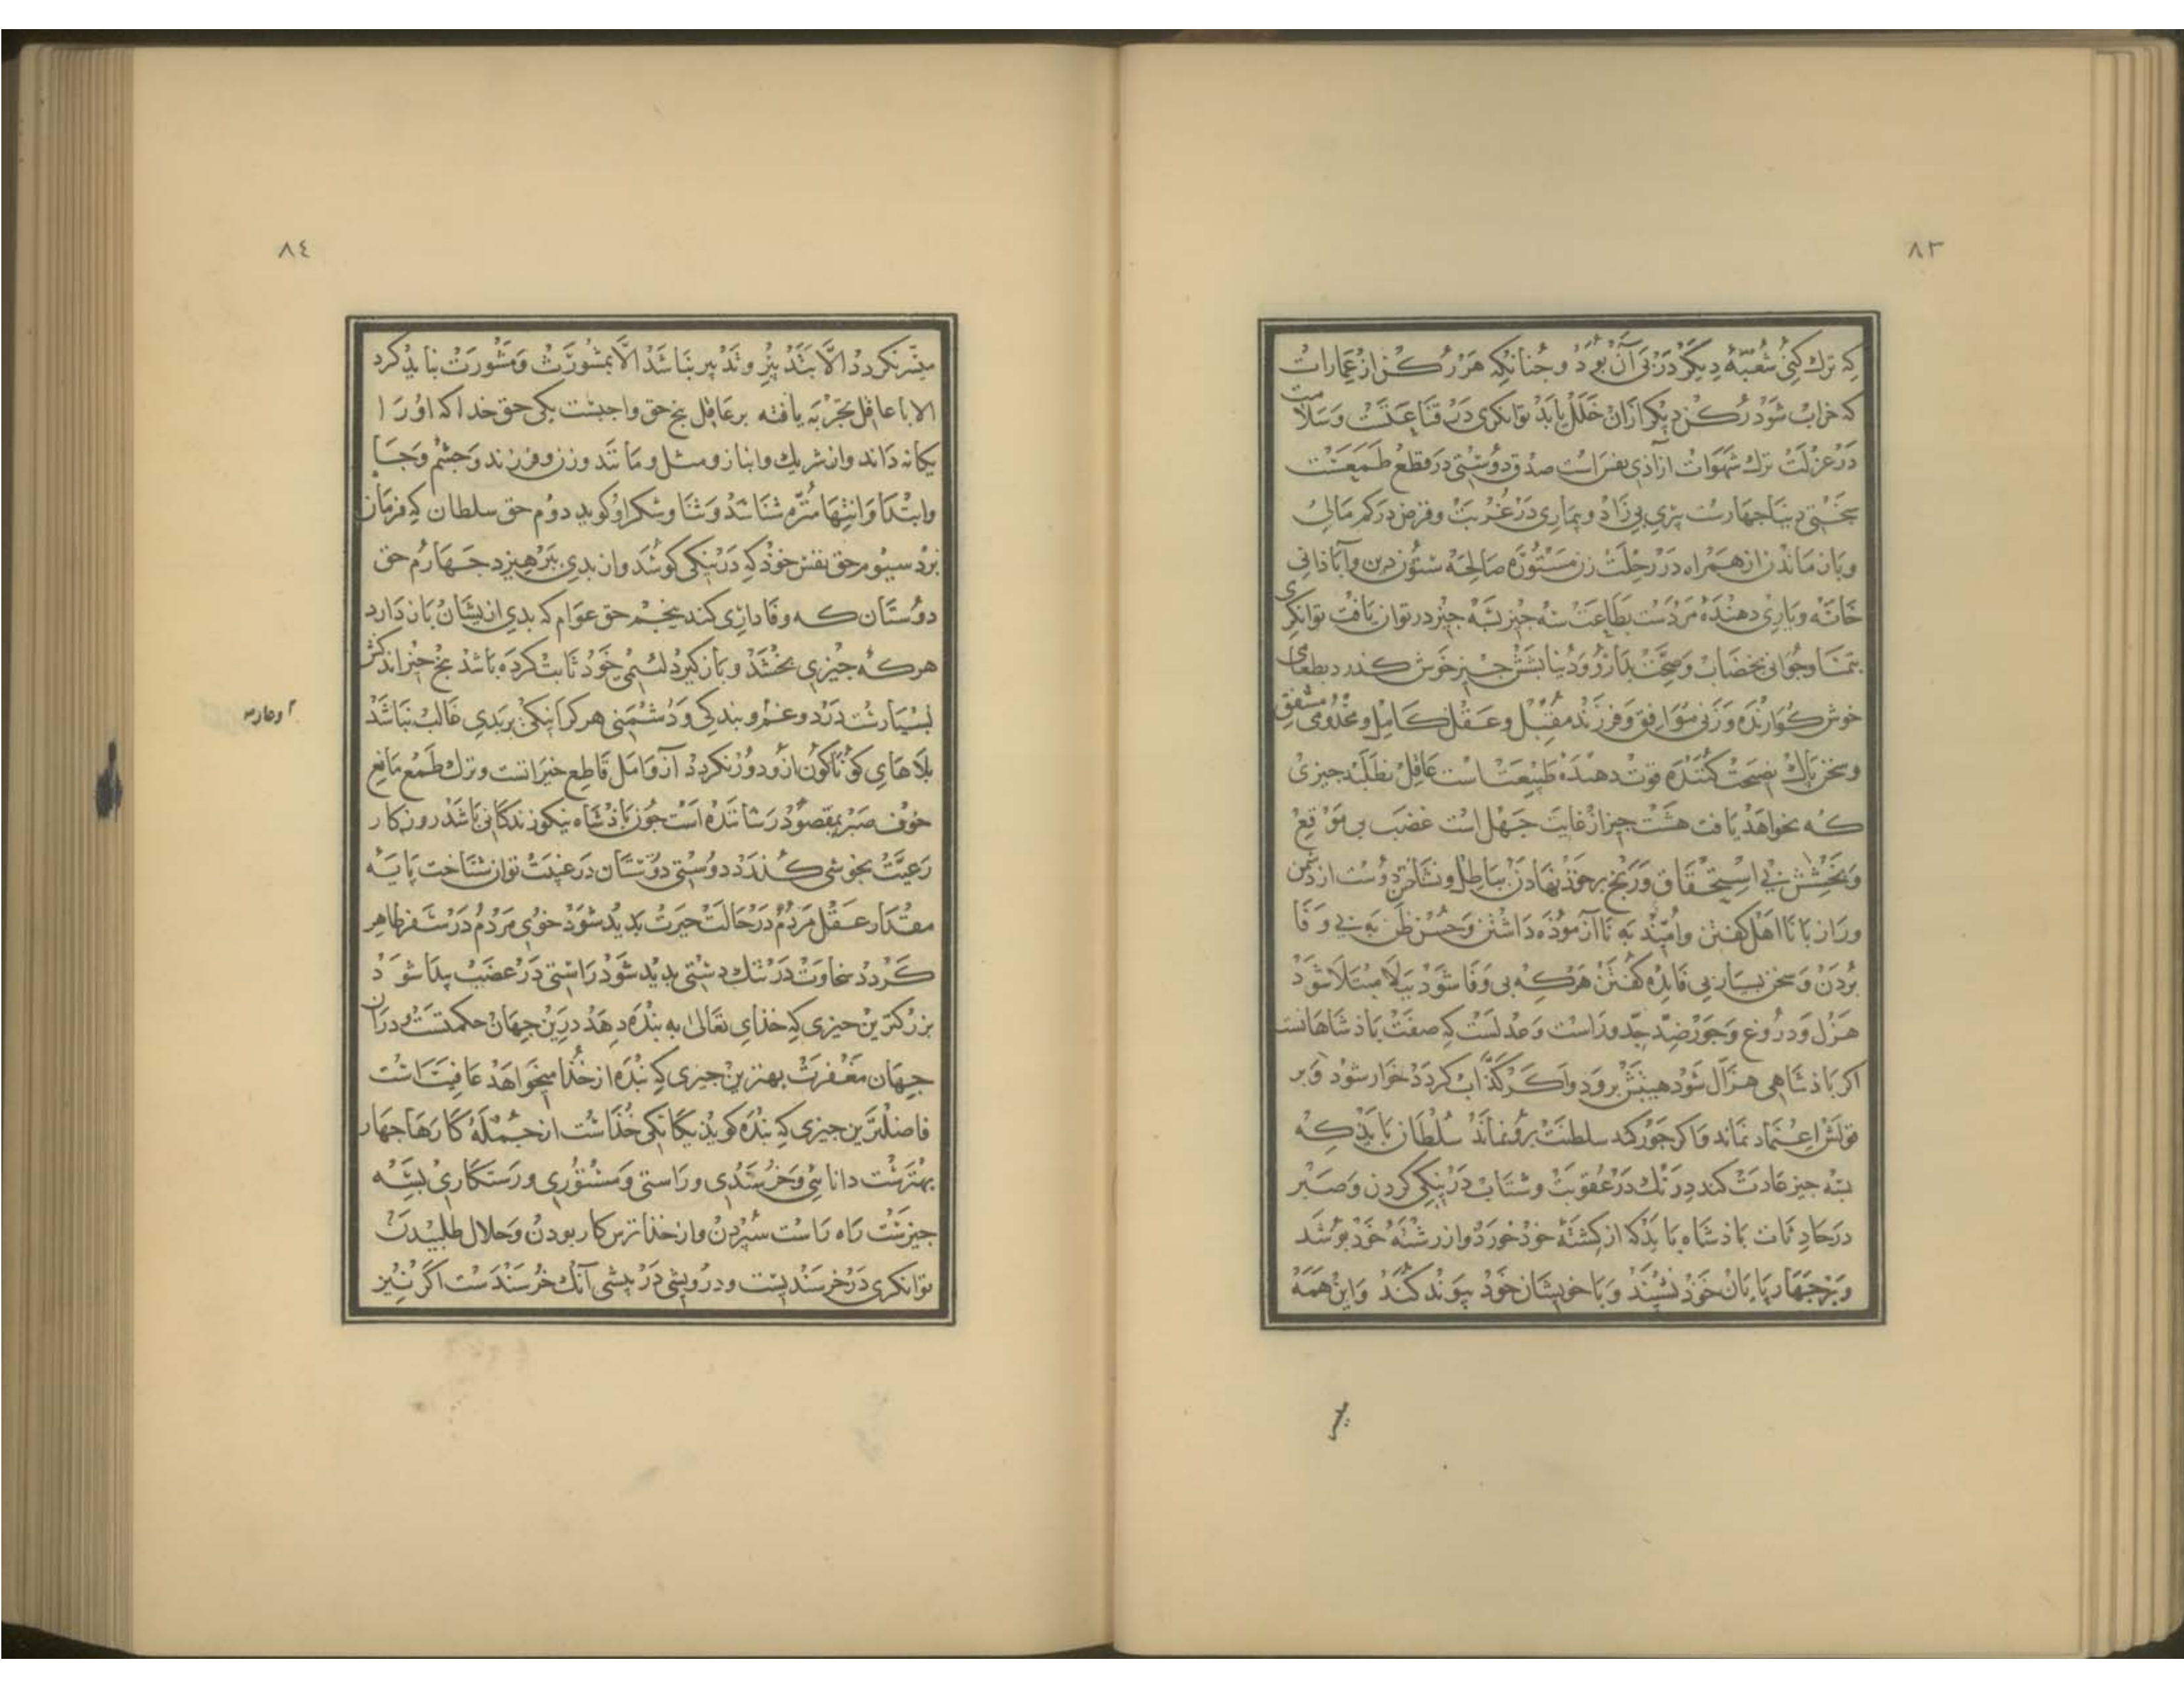 ٨٣
که ترك کنی شعبهٔ دیگر در پی آن بود و جنانکه هر رکن از عمارات
که خراب شود رکن دیکر ازان خلل یابد توانکری در قناعتست وسلامت
در عزلت ترك شهوات آزاذی نفس است صدق دوستی در قطع طمعست
سختی دنیا جهارست پیری بی زاد و بیماری در غربت وقرض در کم مالی
وباز ماندن از همراه در رحلت زن مستوره صالحه ستون دین وآباذانی
خانه ویاری دهنده مردست بطاعت سه جیز بسه جیز در نتوان یافت توانکری
بتمنا وجوانی بخضاب وصحت بدارو ودنیا بشش جیز خوش کذرد بطعامی
خوش کوارنده وزنی موافق وفرزند مقبل وعقل کامل ومخدومی مشفق
وسخن باك نصیحت کننده قوت دهنده طبیعت است عاقل نطلبد جیزی
که نخواهذ یافت هشت جیز از غایت جهل است غضب بی موقع
وبخشش بی استحقاق ورنج برخوذ نهادن بباطل ونشناختن دوست از دشمن
وراز با نااهل کفتن وامید به ناآزموذه داشتن وحسن ظن به بی وفا
بردن وسخن بسیار بی فایده کفتن هرکه بی وفا شود ببلا مبتلا شود
هزل ودروغ وجور ضد جد وراست وعدلست که صفت باذشاهانست
اکر باذشاهی هزال شود هیبتش برود واکر کذاب کردد خوار شود وبر
قولش اعتماد نماند واکر جور کند سلطنت برو نماند سلطان باید که
بسه جیز عادت کند درنك در عقوبت وشتاب در نیکی کردن وصبر
در حادثات باذشاه بایذ که از کشتهٔ خود خورد واز رشته خود بوشد
وبر جهار پایان خوذ نشیند وبا خویشان خوذ پیوند کند واین همه
٨٤
میسر نکردد الا بتدبیر وتدبیر نباشد الا بمشورت ومشورت نبایذ کرد
الا با عاقل تجربه یافته بر عاقل بنج حق واجبست یکی حق خدا که اورا
یکانه داند واز شریك وانباز ومثل ومانند وزن وفرزند وجشم وجا
وابتدا وانتها منزه شناشد وثنا وشکر او کوید دوم حق سلطان که فرمان
برد سیوم حق نفس خوذ که در نیکی کوشد واز بدی ببرهیزد جهارم حق
دوستان که وفاداری کند بنجم حق عوام که بدی ازیشان باز دارد
هرکه جیزی بخشد وباز کیرد لئیمی خود ثابت کرده باشد بنج جیز اندکش
بسیارست درد وغم وبندکی ودشمنی هر کرا نیکی بربدی غالب نباشد
بلاهای کوناکون ازو دور نکردد آز وامل قاطع خیراتست وترك طمع مانع
خوف صبر بمقصود رساننده است جون باذشاه نیکو زندکانی باشد روزکار
رعیت بخوشی کذرد دوستی دوستان در غیبت توان شناخت پایه
مقدار عقل مردم در حالت حیرت بدید شود خوی مردم در سفر ظاهر
کردد سخاوت در تنك دستی بدید شود راستی در غضب بیدا شود
بزرکترین جیزی که خذای تعالی به بنده دهد درین جهان حکمتست ودران
جهان مغفرت بهترین جیزی که بنده از خذا میخواهد عافیت است
فاضلترین جیزی که بنده کویذ یکانکی خذاست از جمله کارها جهار
بهترست دانائی وخرسندی وراستی ومستوری ورستکاری بسه
جیزست راه راست سپردن واز خذا ترس کار بودن وحلال طلبیدن
توانکری در خرسندیست ودرویشی در بیشی آنك خرسندست اکر نیز